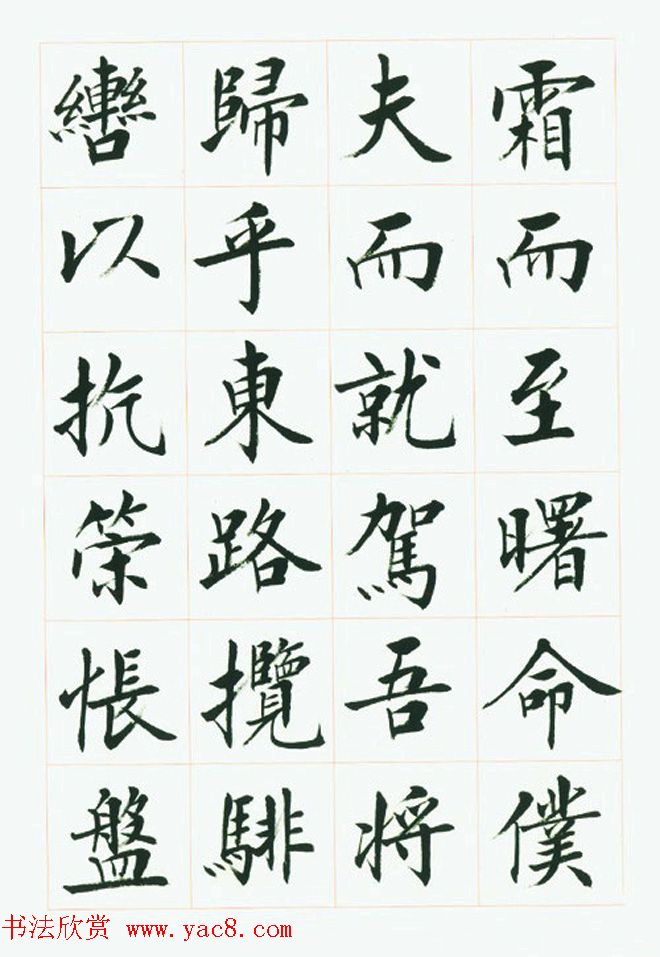 霜而至曙命僕
夫而就駕吾將
歸乎東路攬騑
轡以抗策悵盤
书法欣赏 www.yac8.com